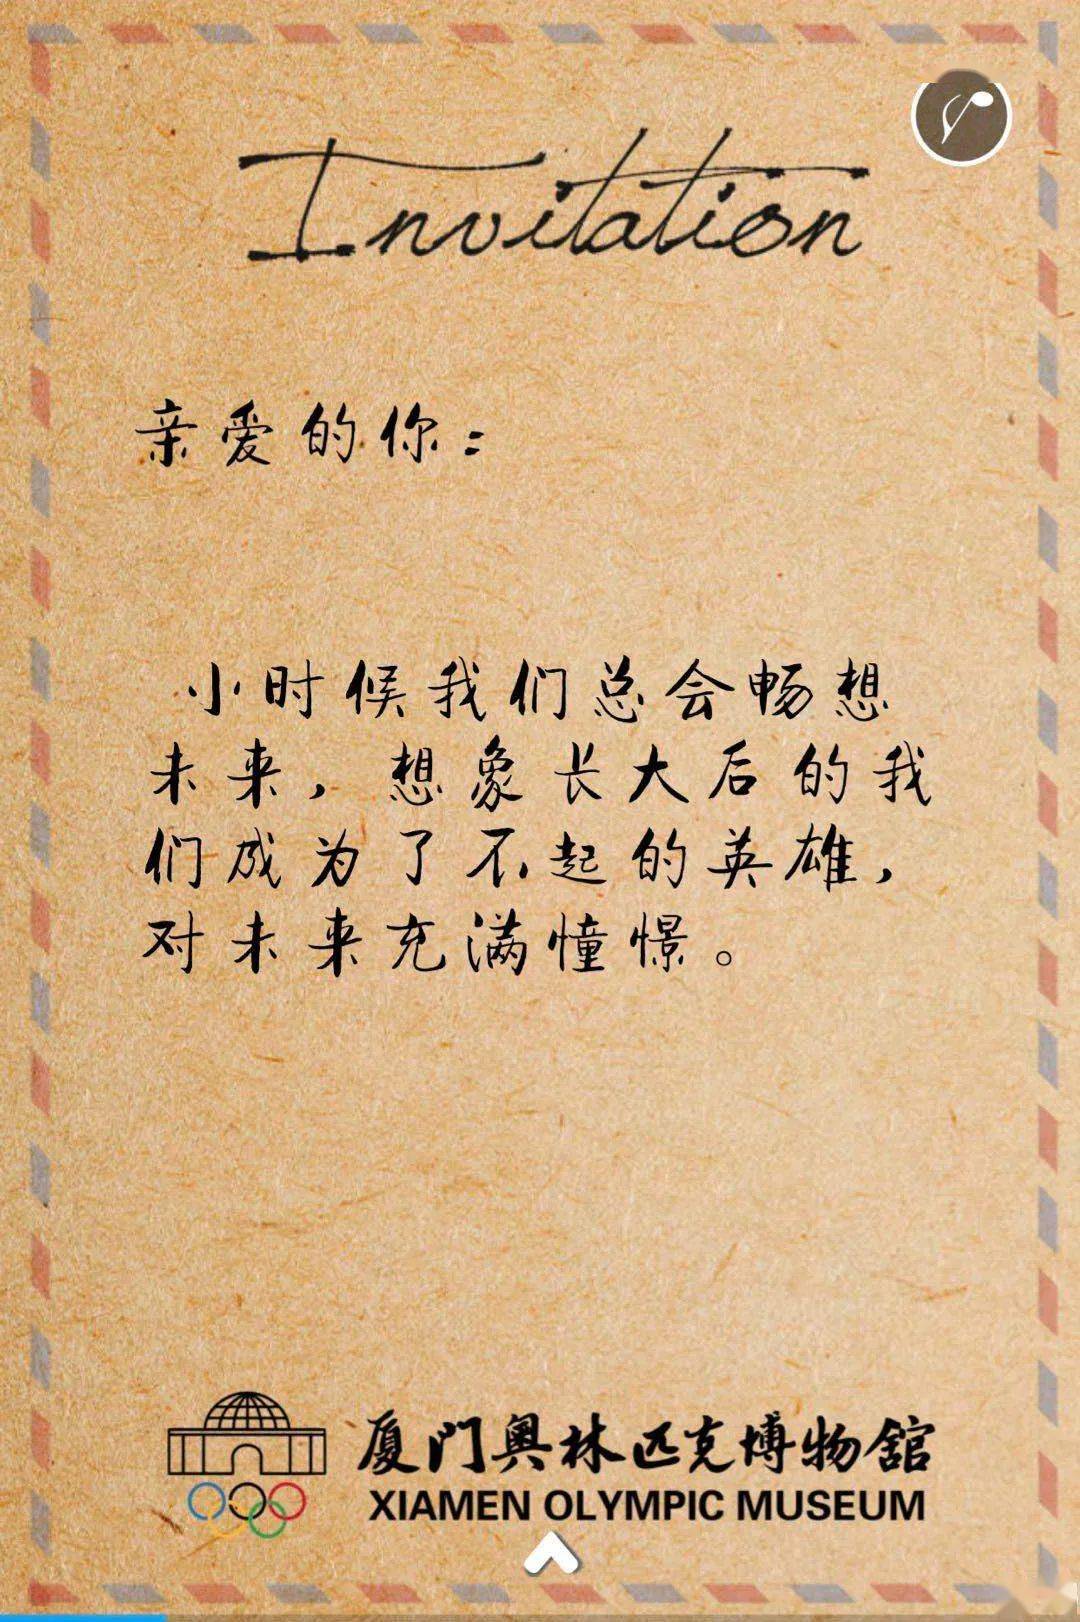 Invitation
亲爱的你：
小时候我们总会畅想
未来，想象长大后的我
们成为了不起的英雄，
对未来充满憧憬。
厦门奥林匹克博物馆
XIAMEN OLYMPIC MUSEUM